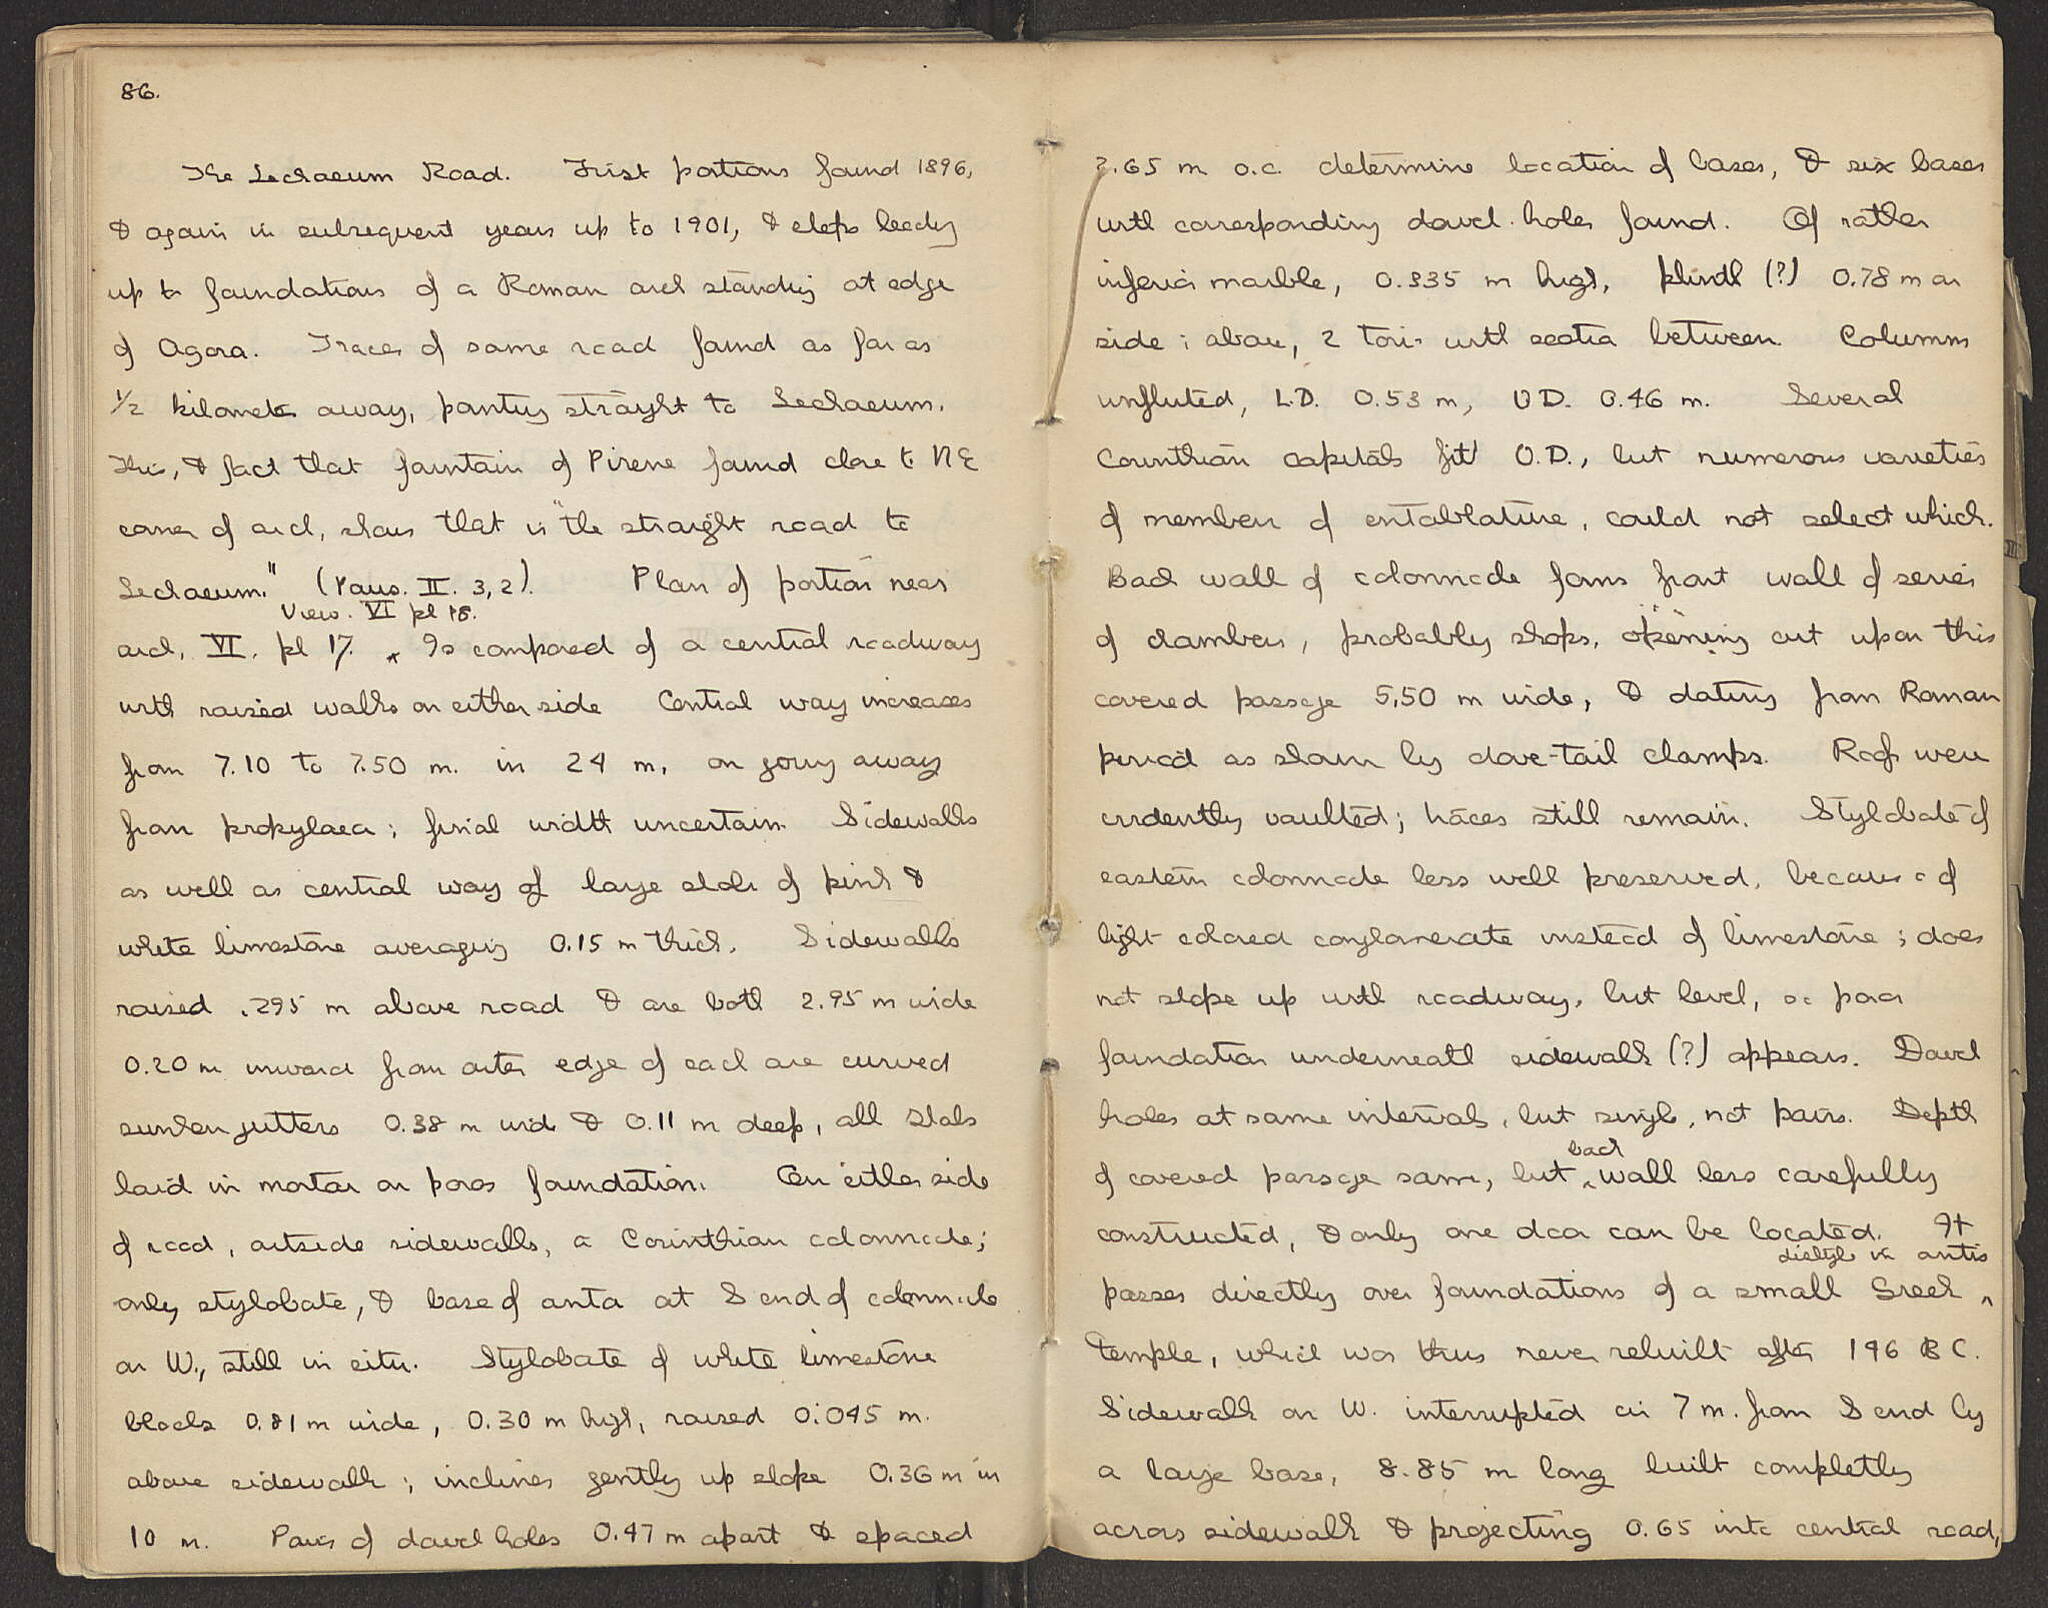 86.
The Lechaeum Road. First portions found 1896,
& again in subsequent years up to 1901, & steps leading
up to foundations of a Roman arch standing at edge
of Agora. Traces of same road found as far as
1/2 kilometer away, pointing straight to Lechaeum.
This, & fact that fountain of Pirene found close to NE
corner of arch, shows that is "the straight road to
Lechaeum." (Paus. II. 3, 2). Plan of portion near
View. VI pl 18.
arch, VI. pl 17. ^ Is composed of a central roadway
with raised walks on either side Central way increases
from 7.10 to 7.50 m. in 24 m. on going away
from propylaea; final width uncertain. Sidewalks
as well as central way of large slabs of pink &
white limestone averaging 0.15 m thick. Sidewalks
raised .295 m above road & are both 2.95 m wide
0.20 m inward from outer edge of each are curved
sunken gutters 0.38 m wide & 0.11 m deep, all slabs
laid in mortar on poros foundation. On either side
of road, outside sidewalks, a Corinthian colonnade;
only stylobate, & base of anta at S end of colonnade
on W., still in situ. Stylobate of white limestone
blocks 0.81 m wide, 0.30 m high, raised 0.045 m.
above sidewalk; inclines gently up slope 0.36 m in
10 m. Pairs of dowel holes 0.47 m apart & spaced
2.65 m o.c. determine location of bases, & six bases
with corresponding dowel holes found. Of rather
inferior marble, 0.335 m high, plinth (?) 0.78 m on
side; above, 2 tori with scotia between. Columns
unfluted, L.D. 0.53 m, U D. 0.46 m. Several
Corinthian capitals fit U.D., but numerous varieties
of members of entablature, could not select which.
Back wall of colonnade forms front wall of series
of chambers, probably shops, opening out upon this
covered passage 5.50 m wide, & dating from Roman
period as shown by dove-tail clamps. Roofs were
evidently vaulted; traces still remain. Stylobate of
eastern colonnade less well preserved, because of
light colored conglomerate instead of limestone; does
not slope up with roadway, but level, so poros
foundation underneath sidewalk (?) appears. Dowel
holes at same intervals, but single, not pairs. Depth
back
of covered passage same, but ^ wall less carefully
constructed, & only one door can be located. It
distyle in antis
passes directly over foundations of a small Greek ^
temple, which was thus never rebuilt after 146 B C.
Sidewalk on W. interrupted at 7 m. from S end by
a large base, 8.85 m long built completly
across sidewalk & projecting 0.65 into central road,